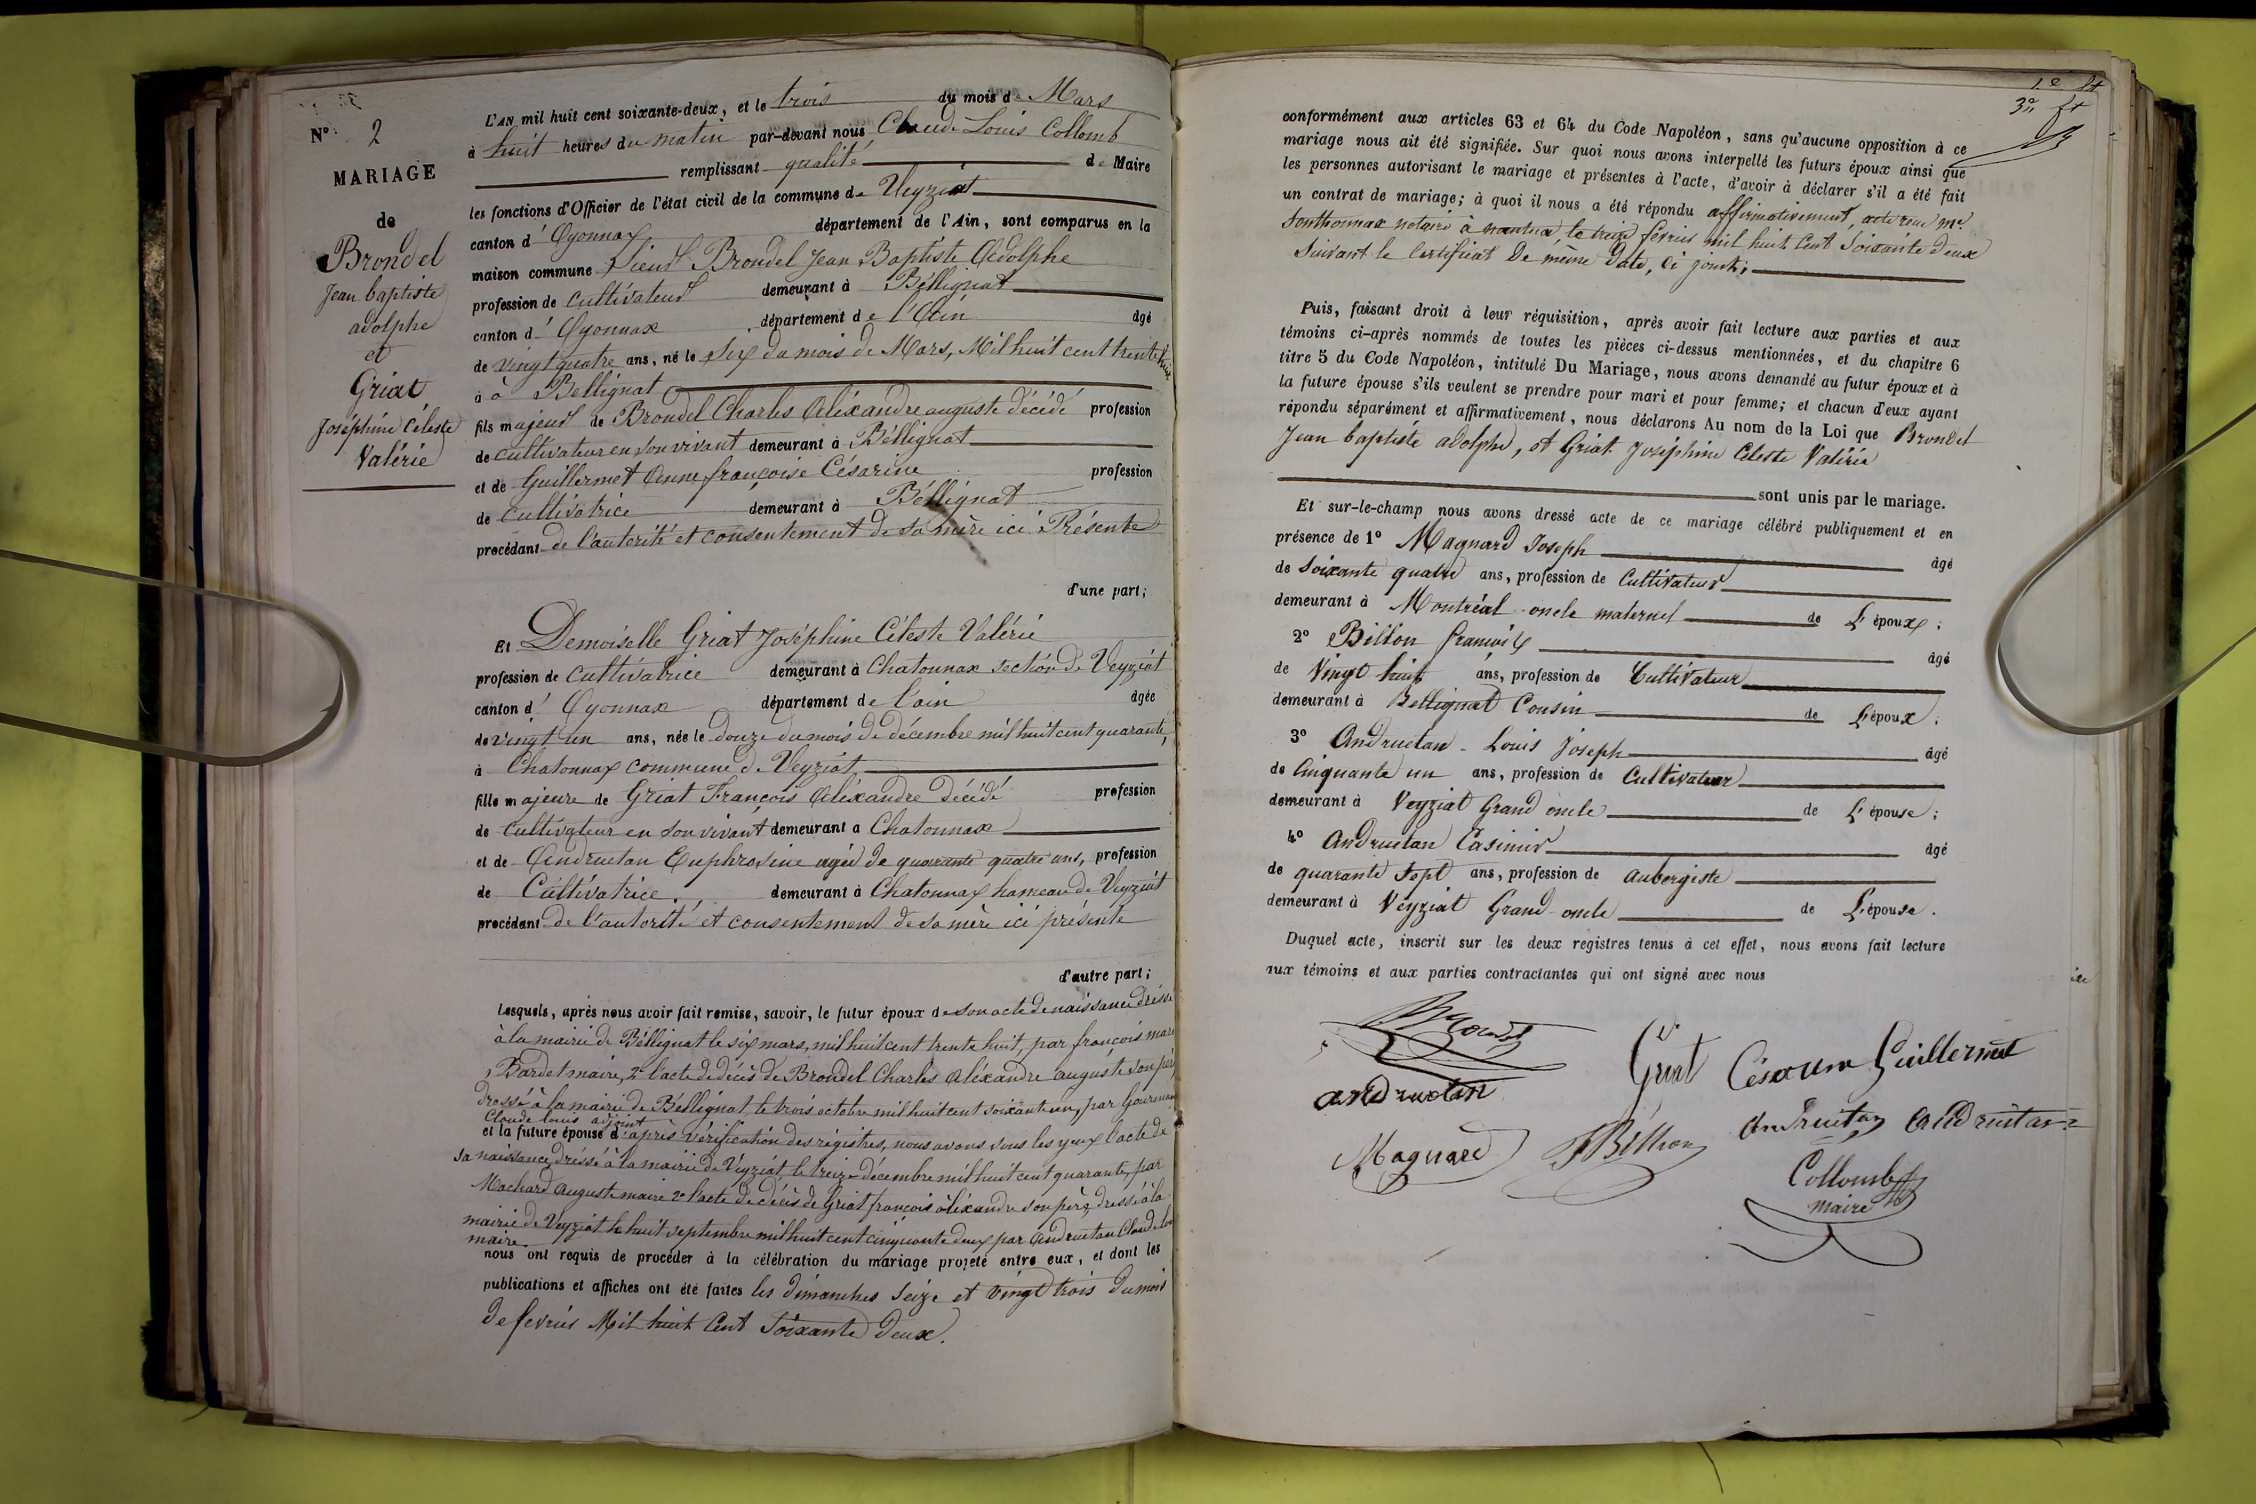 N° 2
MARIAGE
de
Brondel
Jean baptiste
adolphe
et
Griat
Joséphine Céleste
Valérie
L'AN mil huit cent soixante-deux, et le trois du mois de Mars
à huit heures du matin par-devant nous Claude Louis Collomb
remplissant qualité de Maire
les fonctions d'Officier de l'état civil de la commune de Veyziat
canton d' Oyonnax département de l'Ain, sont comparus en la
maison commune Sieur Brondel Jean Baptiste Adolphe
profession de cultivateur demeurant à Bélligniat
canton d' Oyonnax département de l'Ain âgé
de vingt quatre ans, né le Six du mois de Mars, Mil huit cent trente huit
à à Bellignat
fils majeur de Brondel Charles Aléxandre auguste décédé profession
de cultivateur en son vivant demeurant à Béllignat
et de Guillermet Anne françoise Césarine profession
de cultivatrice demeurant à Béllignat
procédant de l'autorité et consentement de sa mère ici Présente
d'une part;
Et Demoiselle Griat Joséphine Céleste Valérie
profession de cultivatrice demeurant à Chatonnax section de Veyziat
canton d' Oyonnax département de l'ain âgée
de vingt un ans, née le douze du mois de décembre mil huit cent quarante,
à Chatonnax commune de Veyziat
fille majeure de Griat François Aléxandre Décédé profession
de cultivateur en son vivant demeurant à Chatonnax
et de Andruetan Euphrosine agée de quarante quatre ans, profession
de Cultivatrice demeurant à Chatonnax hameau de Veyziat
procédant de l'autorité et consentement de sa mère ici présente
d'autre part;
Lesquels, après nous avoir fait remise, savoir, le futur époux de son acte de naissance dréssé
à la mairie de Béllignat le six mars, mil huit cent trente huit, par françois marie
Bardet maire, 2° l'acte de décès de Brondel Charles Aléxandre auguste son père
dressé à la mairie de Béllignat le trois octobre mil huit cent soixante un, par
Claude Louis adjoint
et la future épouse d'après vérification des régistres, nous avons sous les yeux l'acte de
sa naissance dréssé à la mairie de Veyziat le treize décembre mil huit cent quarante, par
Machard Auguste maire 2° l'acte de décès de Griat françois aléxandre son père, dressé à la
mairie de Veyziat le huit septembre mil huit cent cinquante deux par Andruetan Claude
maire
nous ont requis de procéder à la célébration du mariage projeté entre eux, et dont les
publications et affiches ont été faites les dimanches Seize et vingt trois du mois
de fevrier Mil huit Cent Soixante Deux.
conformément aux articles 63 et 64 du Code Napoléon, sans qu'aucune opposition à ce
mariage nous ait été signifiée. Sur quoi nous avons interpellé les futurs époux ainsi que
les personnes autorisant le mariage et présentes à l'acte, d'avoir à déclarer s'il a été fait
un contrat de mariage; à quoi il nous a été répondu affirmativement, acte reçu me.
Sonthonnax notaire à nantua, le treize février mil huit Cent Soixante Deux
Suivant le Certificat De même Date, ci joint;
Puis, faisant droit à leur réquisition, après avoir fait lecture aux parties et aux
témoins ci-après nommés de toutes les pièces ci-dessus mentionnées, et du chapitre 6
titre 5 du Code Napoléon, intitulé Du Mariage, nous avons demandé au futur époux et à
la future épouse s'ils veulent se prendre pour mari et pour femme; et chacun d'eux ayant
répondu séparément et affirmativement, nous déclarons Au nom de la Loi que Brondel
Jean baptiste adolphe, et Griat Joséphine Céleste Valérie
sont unis par le mariage.
Et sur-le-champ nous avons dressé acte de ce mariage célébré publiquement et en
présence de 1° Magnard Joseph âgé
de Soixante quatre ans, profession de Cultivateur
demeurant à Montréal oncle maternel de L'époux;
2° Billon françois âgé
de Vingt huit ans, profession de Cultivateur
demeurant à Bellignat Cousin de L'époux;
3° Andruetan Louis Joseph âgé
de Cinquante un ans, profession de Cultivateur
demeurant à Veyziat Grand oncle de L'épouse;
4° Andruetan Casimir âgé
de quarante Sept ans, profession de aubergiste
demeurant à Veyziat Grand oncle de L'épouse.
Duquel acte, inscrit sur les deux registres tenus à cet effet, nous avons fait lecture
aux témoins et aux parties contractantes qui ont signé avec nous
Brondel
Griat Césarine Guillermet
andruetan
andruetan andruetan
Magnard F Billion
Collomb
maire